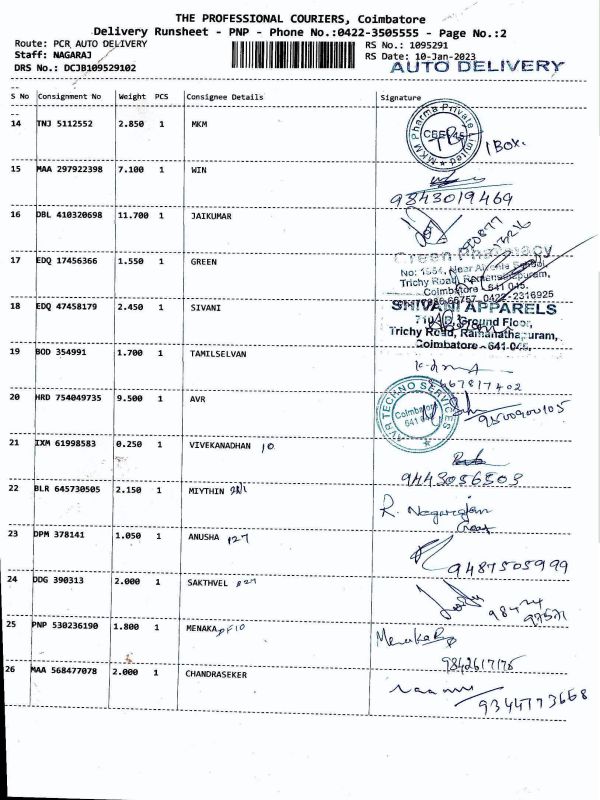 THE PROFESSIONAL COURIERS, Coimbatore
Delivery Runsheet - PNP - Phone No.:0422-3505555 - Page No.:2
Route: PCR AUTO DELIVERY
Staff: NAGARAJ
DRS No.: DCJB109529102
RS No.: 1095291
RS Date: 10-Jan-2023
AUTO DELIVERY
S No Consignment No Weight PCS Consignee Details Signature
14 TNJ 5112552 2.850 1 MKM
MKM Pharma Private Limited
1 Box.
15 MAA 297922398 7.100 1 WIN
9843019469
16 DBL 410320698 11.700 1 JAIKUMAR
17 EDQ 17456366 1.550 1 GREEN
Green Pharmacy
Trichy Road, Ramanathapuram,
Coimbatore 641 045.
0422-2316925
18 EDQ 47458179 2.450 1 SIVANI
SHIVANI APPARELS
Ground Floor,
Trichy Road, Ramanathapuram,
Coimbatore - 641 045.
19 BOD 354991 1.700 1 TAMILSELVAN
8667817402
20 HRD 754049735 9.500 1 AVR
AVR TECHNO SERVICES
Coimbatore
9500900105
21 IXM 61998583 0.250 1 VIVEKANADHAN 10
9443056503
22 BLR 645730505 2.150 1 MIYTHIN
R. Nagarajan
23 DPM 378141 1.050 1 ANUSHA 127
9487505999
24 DDG 390313 2.000 1 SAKTHVEL
98424
97571
25 PNP 530236190 1.800 1 MENAKA
Menaka
9842617176
26 MAA 568477078 2.000 1 CHANDRASEKER
9344773668